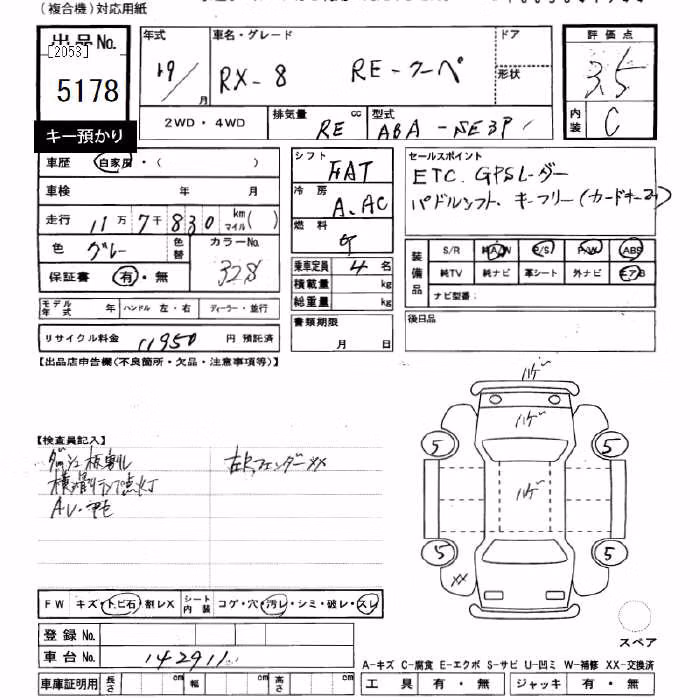 (複合機)対応用紙
出品No. 年式 車名・グレード ドア 評価点
[2053]
5178 19/月 RX-8 RE-クーペ 形状 3.5
2WD・4WD 排気量 RE cc 型式 ABA-SE3P 内装 C
キー預かり
車歴 自家用・( ) シフト FAT セールスポイント
車検 年 月 冷房 A.AC ETC. GPSレーダー
走行 11万7千830 km マイル( ) 燃料 ガ パドルシフト. キーフリー(カードキー2)
色 グレー 色替 カラーNo. 32S
保証書 有・無 乗車定員 4名
積載量 kg
総重量 kg
装備品 S/R 純A/W P/S P/W ABS
純TV 純ナビ 革シート 外ナビ エアB
ナビ型番:
モデル年式 年 ハンドル 左・右 ディーラー・並行
リサイクル料金 11950 円 預託済 書類期限 月 日 後日品
【出品店申告欄(不良箇所・欠品・注意事項等)】
ハゲ
ハゲ
【検査員記入】
ダッシュ板割れ 左Fフェンダー XX
横滑りランプ点灯
5 5
ハゲ
5 5
XX
FW キズ・トビ石・割レX シート内装 コゲ・穴・汚レ・シミ・破レ・スレ
登録No.
車台No. 142911
スペア
A-キズ C-腐食 E-エクボ S-サビ U-凹ミ W-補修 XX-交換済
車庫証明用 長さ cm 幅 cm 高さ cm 工具 有・無 ジャッキ 有・無